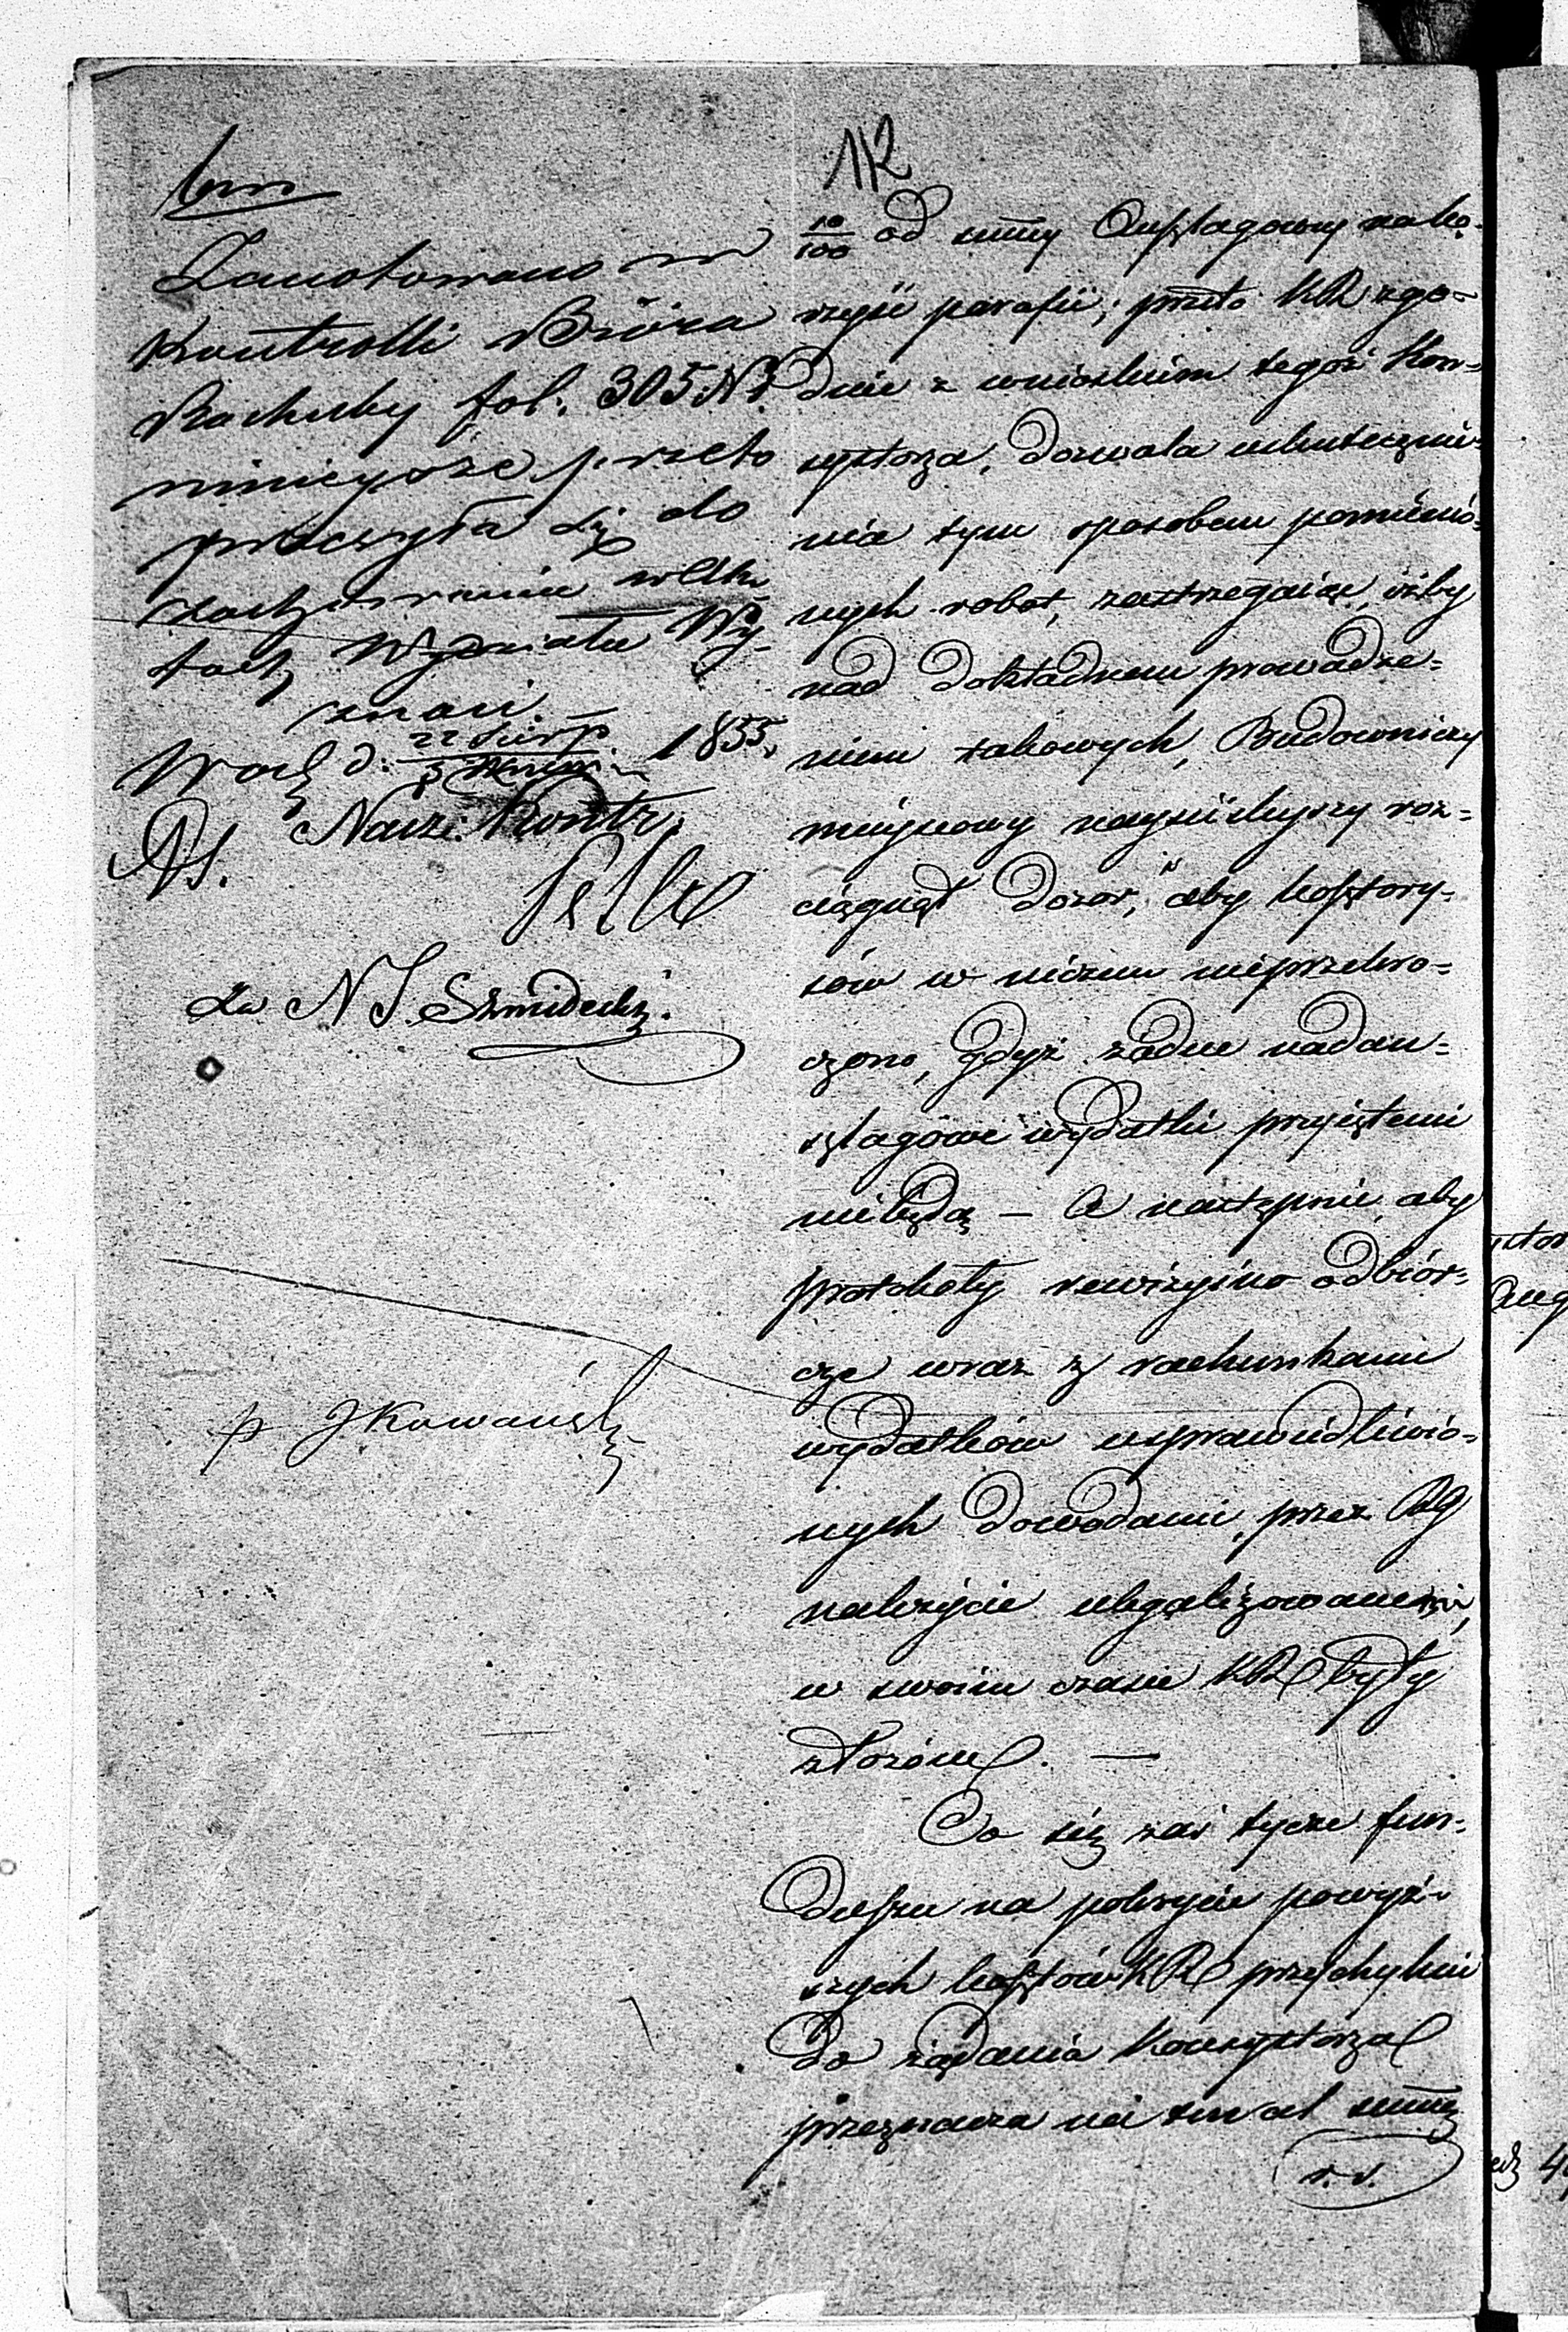 112
Zanotowano w
Kontrolli Bióra
Rachuby fol. 305 N
ninieysze przeto
przesyła się do
zachowania w Ak-
tach Wydziału Wy-
znań.
d. 22 Sierp. 1855.
Nacz: Kontr.
za N S. Szmidecki.
10/100 od summy Anszlagowey na ko-
rzyść parafii; przeto KR zgo-
dnie z wnioskiem tegoż Kon-
systorza, dozwala uskutecznie-
nia tym sposobem pomienio-
nych robot, zastrzegaiąc, iżby
nad dokładnem prowadze-
niem takowych, Budowniczy
mieyscowy nayściśleyszy roz-
ciągnął dozór, aby kosztory-
sów w niczem nieprzekro-
czono, gdyż żadne nadan-
szlagowe wydatki przyiętemi
niebędą — A następnie, aby
protokoły rewizyino odbiór-
cze wraz z rachunkami
wydatków usprawiedliwio-
nych dowodami, przez RG
należycie ulegalizowanemi,
w swoim czasie KR były
złożone. —
Co się zaś tycze fun-
duszu na pokrycie powyż-
szych kosztów KR przychylnie
do żądania Konsystorza
przeznacza na ten cel summę
v. v.